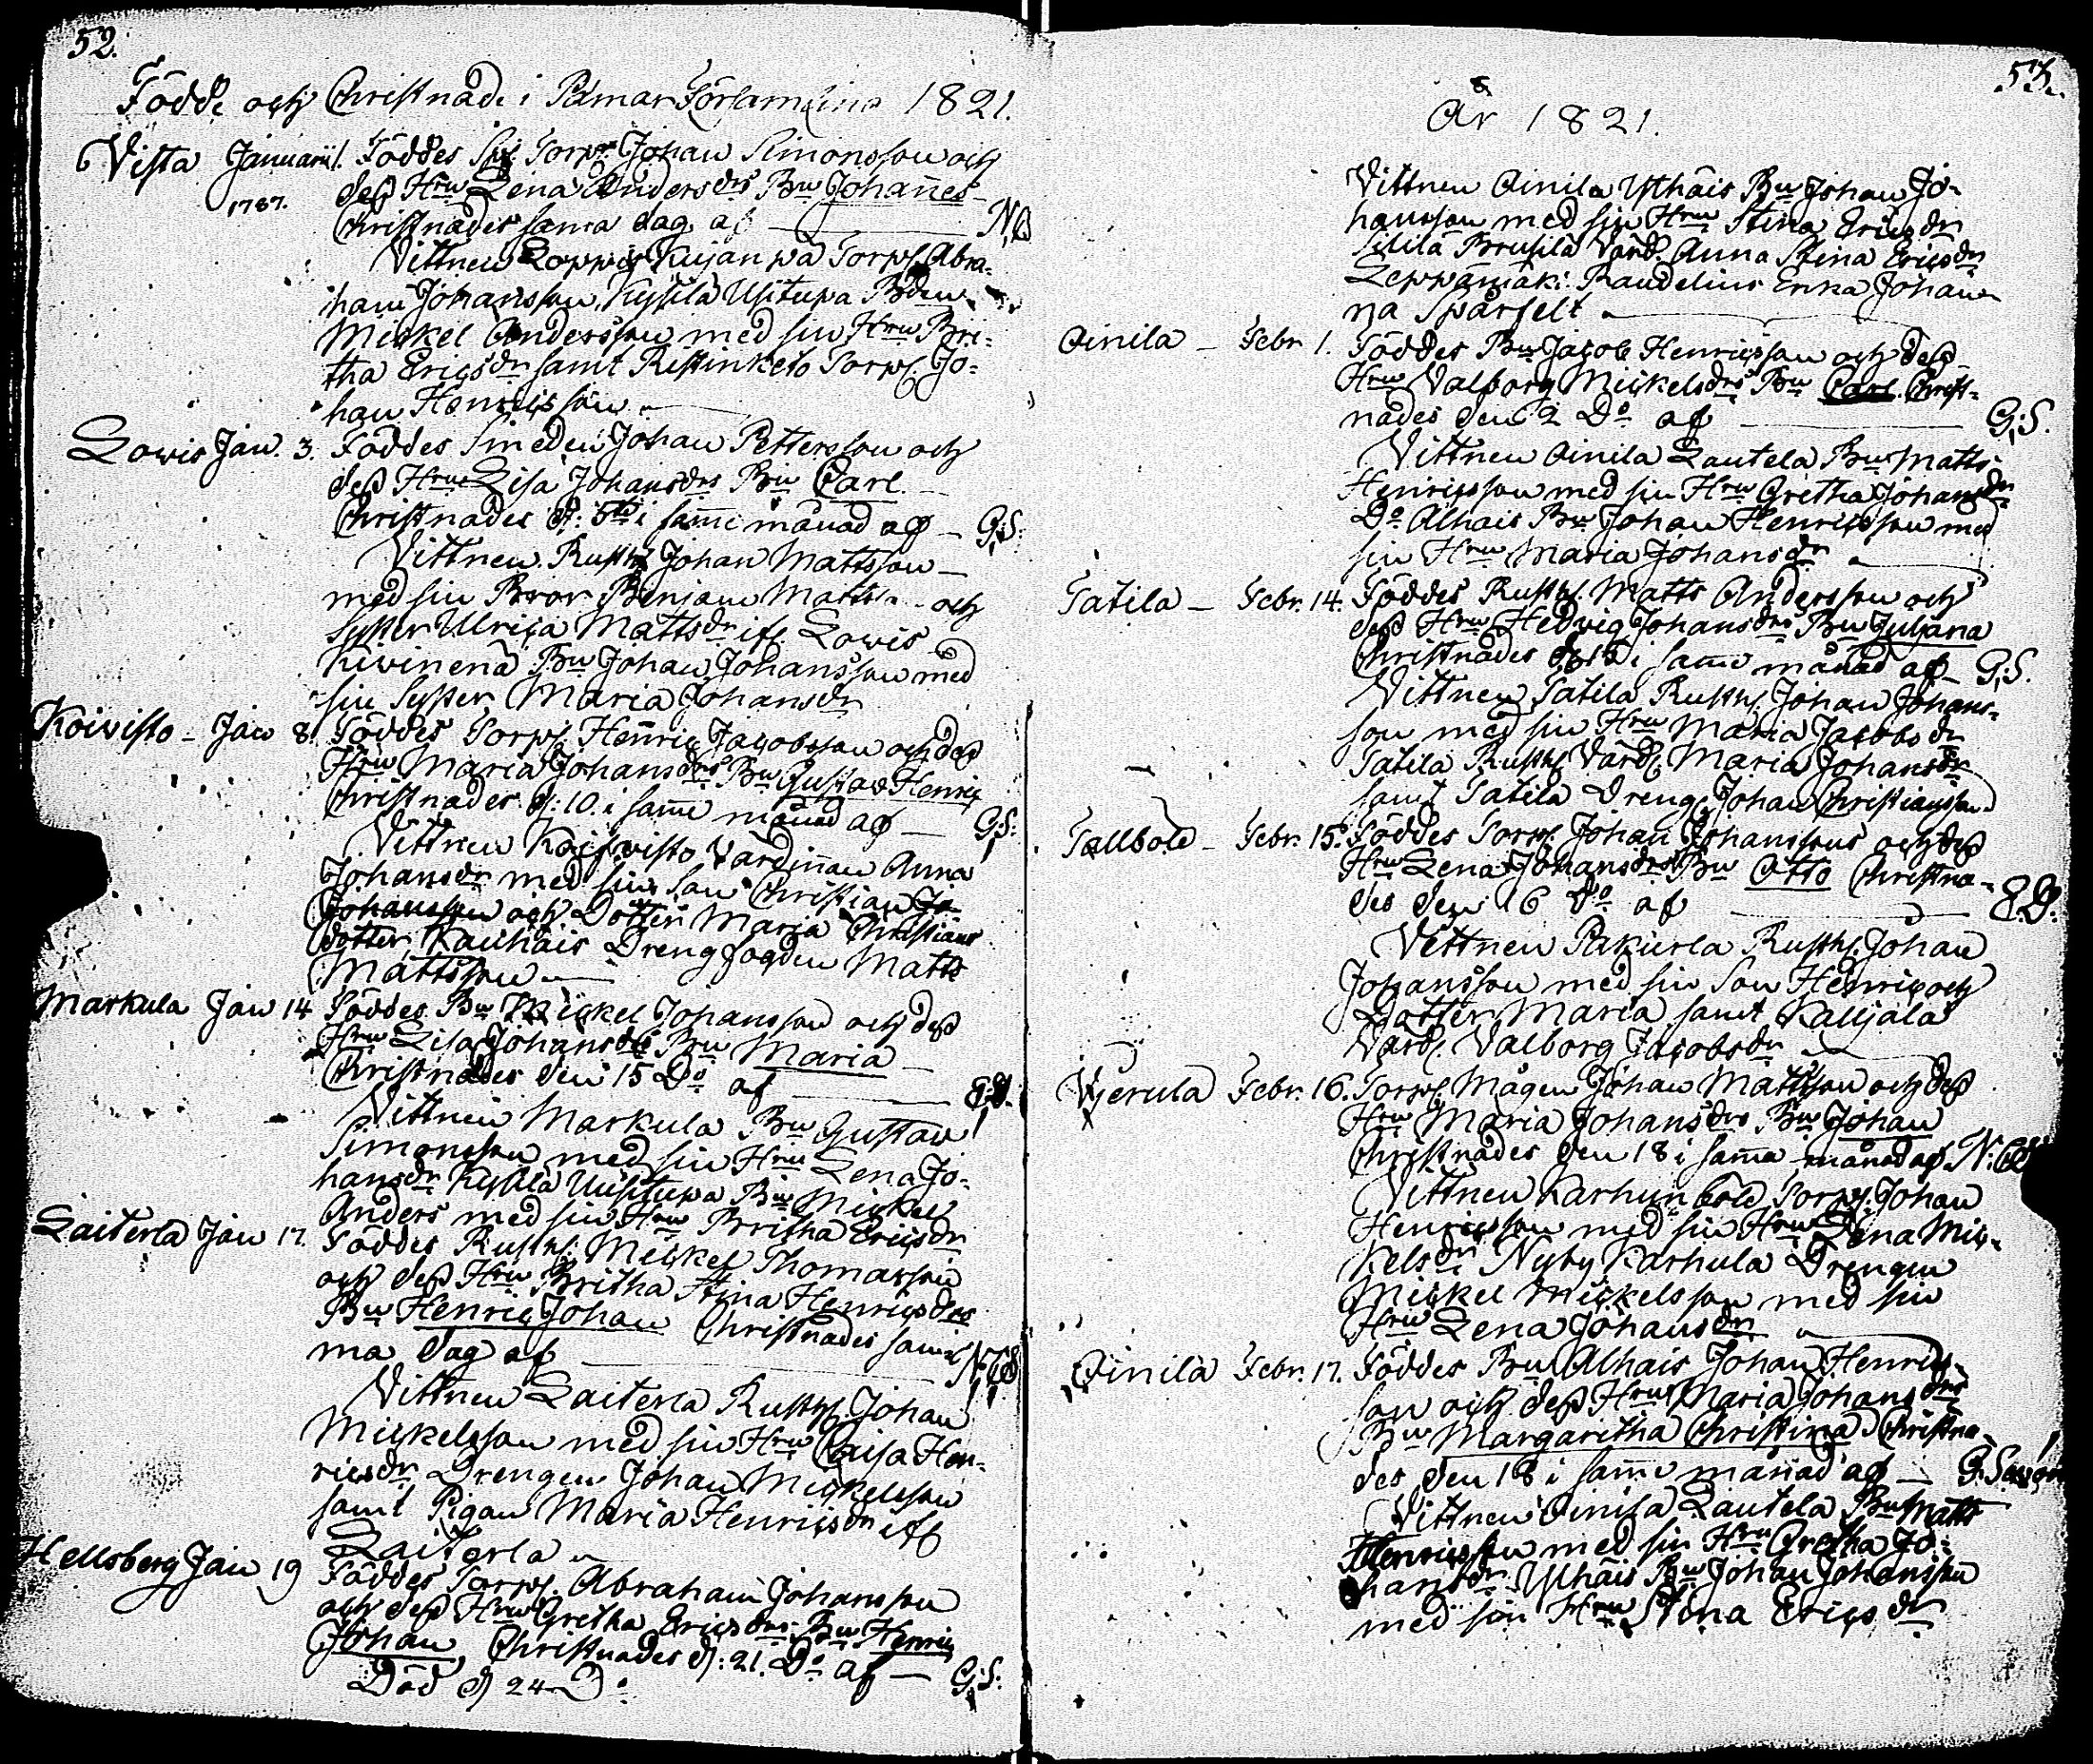 52.
Födde och Christnade i Pämar Församling 1821.
Vista Januarii 1. Föddes Torp. Johan Simonsson och
1787. dess Hru Lena Andersdrs Bn Johannes
Christnades sama dag af — N.B
Vittnen Kujanpä Torp. Abra-
ham Johansson, Kyssilä Usitupa Bonden
Mickel Andersson med sin Hru Bri-
tha Ericsdr samt Ristinketo Torp. Jo-
han Henricsson
Lowis Jan. 3. Föddes Smeden Johan Pettersson och
dess Hrus Lisa Johansdrs Bn Carl
Christnades d: 5te i samme månad af — G.S.
Vittnen Rusth. Johan Mattsson
med sin Bror Benjam Matts och
Syster Ulrica Mattsdr ifr. Lowis
Kivinena Bn Johan Johansson med
sin Syster Maria Johansdr
Koivisto – Jan 8. Föddes Torp. Henric Jacobsson och dess
Hru Maria Johansdrs Bn Gustav Henric
Christnades d: 10. i samme månad af — G.S.
Vittnen Koifvisto Värdinnan Anna
Johansdr med sin Son Christian Jo-
Johansson och Dotter Maria Christians
dotter, Kauhais Drengfogden Matts
Mattsson
Markula Jan 14 Föddes Bn Mickel Johansson och dess
Hru Lisa Johansdrs Bn Maria
Christnades den 15 Do af
Vittnen Markula Bn Gustav
Simonsson med sin Hru Lena Jo-
hansdr Kyssilä Uusitupa Bn Mickel
Anders med sin Hru Britha Ericsdr
Laiterla Jan 17. Föddes Rusth. Mickel Thomasson
och dess Hru Britha Stina Henricsdrs
Bn Henric Johan Christnades sam-
ma dag af
Vittnen Laiterla Rusth. Johan
Mickelsson med sin Hru Caisa Hen-
ricsdr Drengen Johan Mickelsson
samt Pigan Maria Henricsdr ifr
Laiterla
Hellsberg Jan 19 Föddes Torp. Abraham Johansson
och dess Hru Gretha Ericsdrs Bn Henric
Johan, Christnades d: 21. Do af — G.S.
Död d 24 Do
53.
År 1821.
Vittnen Oinila Ylhäis Bn Johan Jo-
hansson med sin Hru Stina Ericsdr
Prusila Värd. Anna Stina Ericsdr
Leppämäki Enka Johan-
na Sparfelt
Oinila – Febr 1. Föddes Bn Jacob Henricsson och dess
Hru Valborg Mickelsdrs Bn Carl. Christ-
nades den 2 Do af — G.S.
Vittnen Oinila Lautela Bn Matts
Henricsson med sin Hru Gretha Johansdr
Do Alhais Bn Johan Henricsson med
sin Hru Maria Johansdr
Tatila – Febr. 14. Föddes Rusth. Matts Andersson och
dess Hru Hedvig Johansdrs Bn Juliana
Christnades i samme månad af – G.S.
Vittnen Tatila Rusth. Johan Johans-
son med sin Hru Maria Jacobsdr
Tatila Rusth. Värd. Maria Johansdr
samt Tatila Dreng Johan Christiansson
Tallbole – Febr. 15. Föddes Torp. Johan Johanssons och dess
Hru Lena Johansdrs Bn Otto Christna-
des den 16 Do af
Vittnen Pakurla Rusth. Johan
Johansson med sin Son Henric och
Dotter Maria samt Kalljala
Värd. Valborg Jacobsdr
Vjerula Febr. 16. Torp. Mågen Johan Mattsson och dess
Hru Maria Johansdrs Bn Johan
Christnades den 18 i samma månad af
Vittnen Karhun bole Torp. Johan
Henricsson med sin Hru Lena Mic-
kelsdr Nyby Karhula Drengen
Mickel Mickelsson med sin
Hru Lena Johansdr
Oinila Febr. 17. Föddes Bn Alhais Johan Henrics-
son och dess Hrus Maria Johansdrs
Bn Margaritha Christina Christna-
des den 18 i samme månad af
Vittnen Oinila Lautela Bn Matts
Henricsson med sin Hru Gretha Jo-
hansdr Ylhäis Bn Johan Johansson
med sin Hru Stina Ericsdr